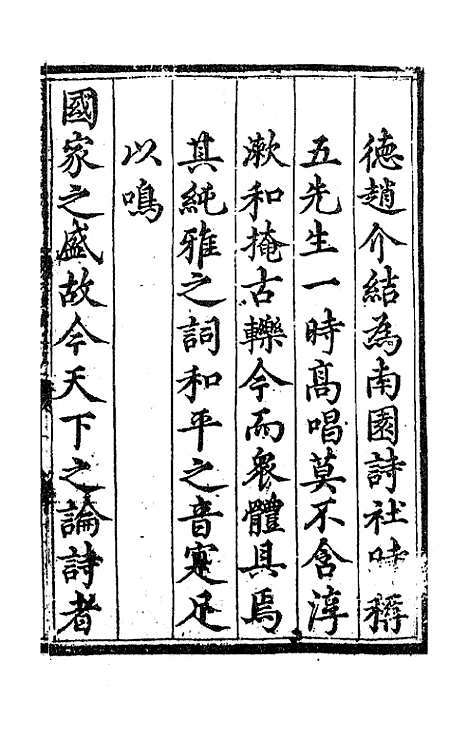 德趙介結為南園詩社時稱
五先生一時髙唱莫不含淳
漱和掩古轢今而衆體具焉
其純雅之詞和平之音寔足
以鳴
國家之盛故今天下之論詩者